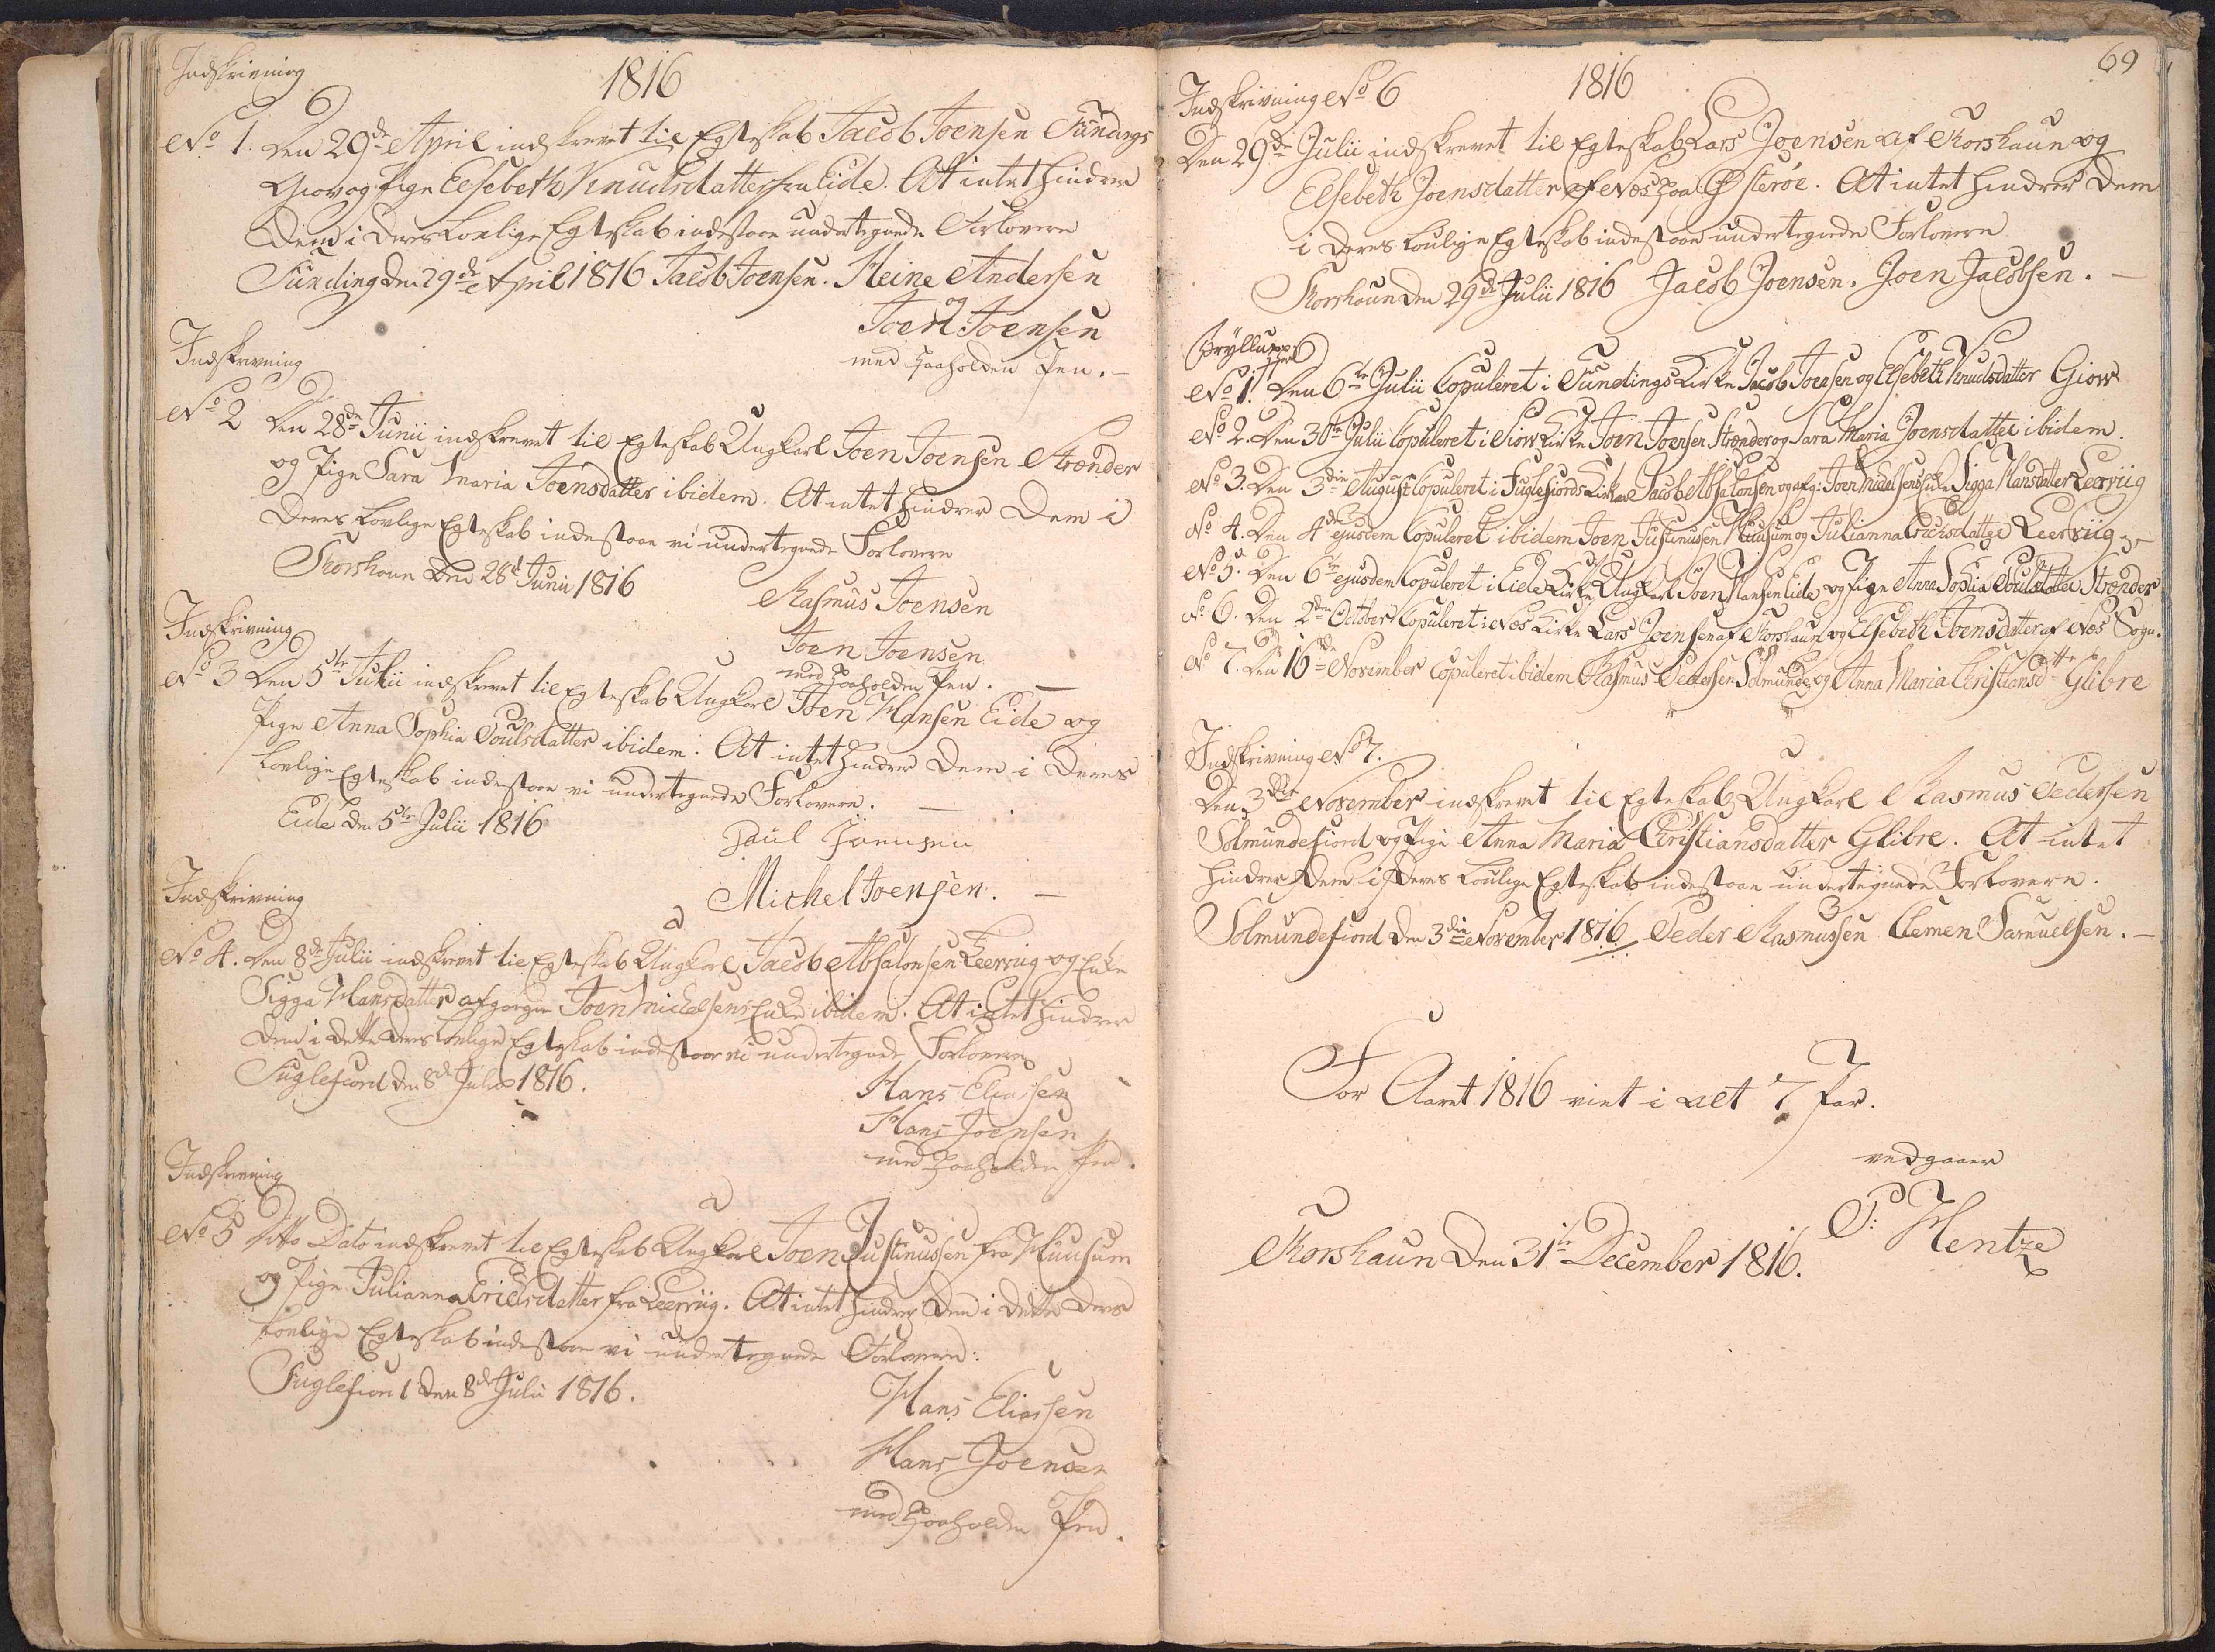 Indskrivning
1816
No 1. Den 29de April indskrevet til Egteskab Jacob Joensen Fundings
Giov og Pige Elsebeth Knudsdatter fra Eide. At intet hindrer
Dem i Deres Lovlige Egteskab indestaae undertegnede Forlovere
Funding den 29de April 1816 Jacob Joensen. Heine Andersen
og
Joen Joensen
med paaholden Pen.
Indskrivning
No 2 Den 28de Junii indskrevet til Egteskab Ungkarl Joen Joensen Strænder
og Pige Sara Maria Joensdatter ibidem. At intet hindrer Dem i
Deres Lovlige Egteskab indestaae vi undertegnede Forlovere
Thorshavn den 28d Junii 1816
Rasmus Joensen
Joen Joensen
med paaholden Pen.
Indskrivning
No 3 Den 5te Julii indskrevet til Egteskab Ungkarl Joen Hansen Eide og
Pige Anna Sophia Poulsdatter ibidem. At intet hindrer Dem i Deres
Lovlige Egteskab indestaae vi undertegnede Forlovere.
Eide den 5te Julii 1816
Paul Joensen
Michel Joensen.
Indskrivning
No 4. Den 8de Julii indskrevet til Egteskab Ungkarl Jacob Absalonsen Leervig og Enke
Sigga Hansdatter afgangne Joen Michelsens Enke ibidem. At intet hindrer
Dem i dette deres Lovlige Egteskab indestaae vi undertegnede Forlovere
Fuglefiord den 8d Julii 1816.
Hans Eliassen
Hans Joensen
med paaholden Pen.
Indskrivning
No 5 Ditto Dato indskrevet til Egteskab Ungkarl Joen Justinussen fra Huusum
og Pige Julianna Erichsdatter fra Leerviig. At intet hindrer Dem i dette deres
Lovlige Egteskab indestaae vi undertegnede Forlovere:
Fuglefiord den 8d Julii 1816.
Hans Eliassen
Hans Joensen
med paaholden Pen.
69
1816
Indskrivning No 6
Den 29de Julii indskrevet til Egteskab Lars Joensen af Thorshaun og
Elsebeth Joensdatter af Næs paa Østerøe. At intet hindrer Dem
i Deres Loulige Egteskab indestaae undertegnede Forlovere
Thorshaun den 29de Julii 1816 Jacob Joensen. Joen Jacobsen.
Brylluppe
No 1. Den 6te Julii Copuleret i Fundings Kirke Jacob Joensen og Elsebeth Knudsdatter Giow
No 2. Den 30te Julii Copuleret i Siow Kirke Joen Joensen Strænder og Sara Maria Joensdatter ibidem.
No 3. Den 3die August Copuleret i Fuglefiords Kirke Jacob Absalonsen og afg: Joen Michelsens Enke Sigga Hansdatter Leerviig
No 4. Den 4de ejusdem Copuleret ibidem Joen Justinussen Huusum og Julianna Erichsdatter Leerviig
No 5. Den 6te ejusdem Copuleret i Eide Kirke Ungkarl Joen Hansen Eide og Pige Anna Sophia Poulsdatter Strænder
No 6. Den 2den October Copuleret i Næs Kirke Lars Joensen af Thorshaun og Elsebeth Joensdatter af Næs Sogn.
No 7. Den 16de November Copuleret ibidem Rasmus Pedersen Solmunde og Anna Maria Christiansdtte Glibre
Indskrivning No 7.
Den 3die November indskrevet til Egteskab Ungkarl Rasmus Pedersen
Solmundefiord og Pige Anna Maria Christiansdatter Glibre. At intet
hindrer Dem i Deres Loulige Egteskab indestaae undertegnede Forlovere.
Solmundefiord den 3die November 1816 Peder Rasmussen Clemen Samuelsen.
For Aaret 1816 viet i alt 7 Par.
vedgaaer
P: Hentze
Thorshaun Den 31te December 1816.